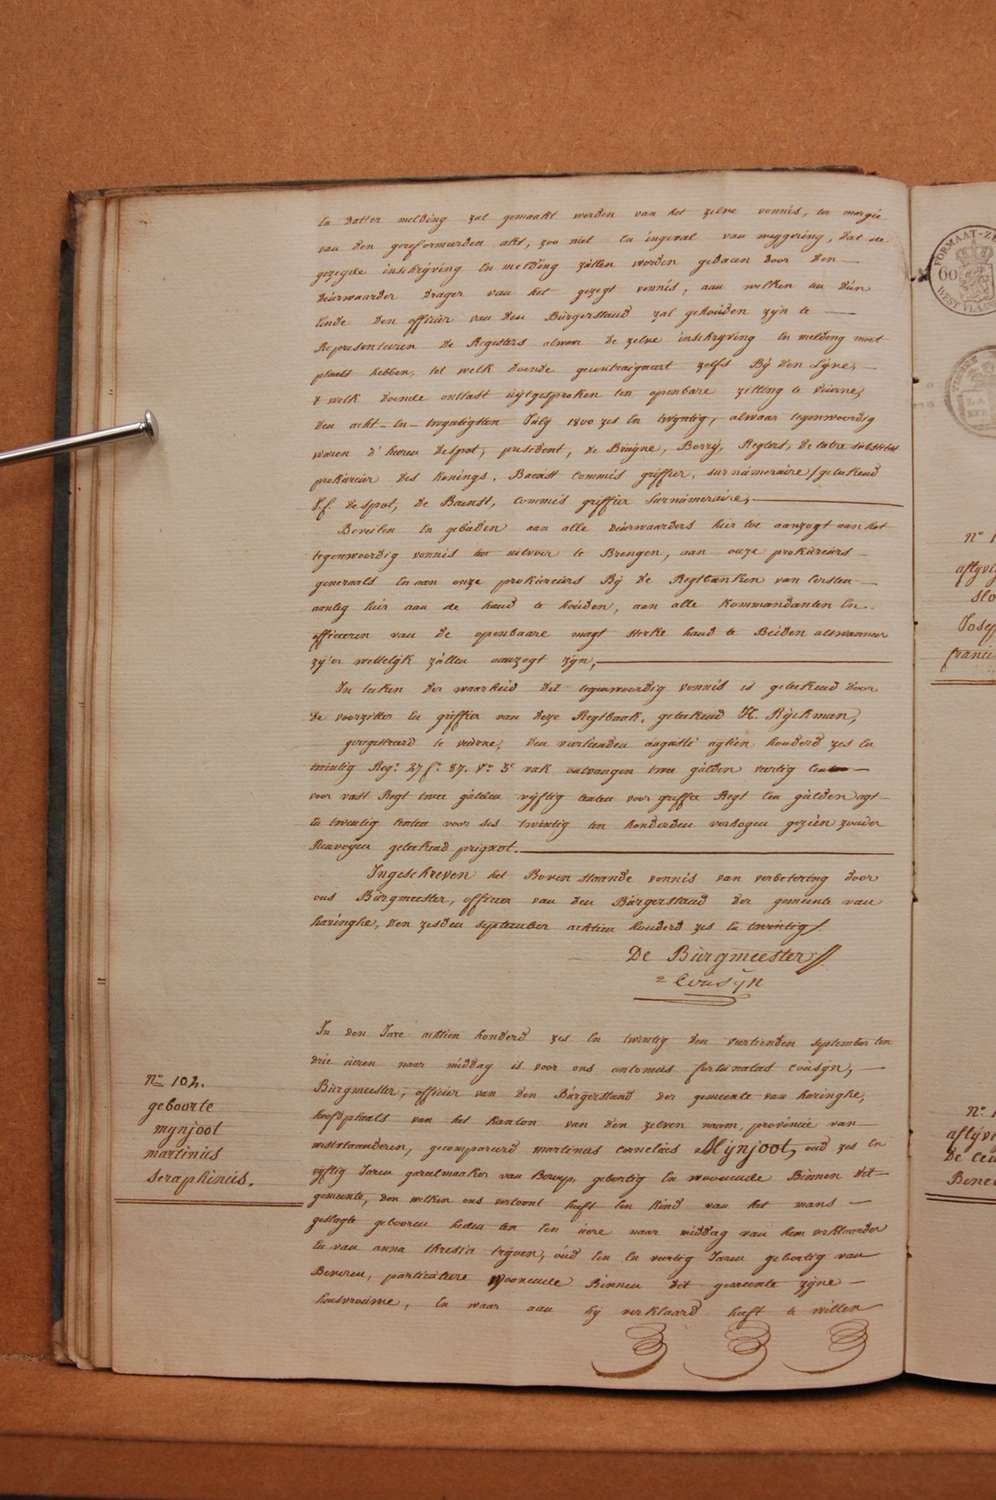 En datter melding zal gemaakt worden van het zelve vonnis, ter margie
van den gereformeerden akt, zoo niet en ingeval van weggering, dat de
gezegde inschrijving en melding zullen worden gedaen door den
deurwaarder drager van het gezegt vonnis, aan welken ten dien
einde den officier van den Burgerstand zal gehouden zyn te
Representeeren de Registers alwaar de zelve inschryving en melding moet
plaats hebben, tot welk doende gecontraigneert zelfs By den Lyve,
welk doende ontlast uytgesproken ten openbare zitting te veurne,
den acht-en-twyntigsten July 1800 zes en twyntig, alwaar tegenwoordig
waren d' heeren despot, president, de Bruyne, Borry, Regters, de substitut
prokureur des konings, Baeast commis griffier, surnumeraire / geteekend
despot, de Baenst, commis griffier surnumeraire,
Bevelen en gebieden aan alle deurwaarders hier toe aanzogt aan het
tegenwoordig vonnis ter uitvoer te Brengen, aan onze prokureurs
generaals en aan onze prokureurs By de Regtbanken van eersten
aanleg hier aan de hand te houden, aan alle kommandanten en
officieren van de openbaare magt sterke hand te Bieden alswanneer
zy'er wettelyk zullen aanzogt zyn,
In teeken der waarheid dit tegenwoordig vonnis is geteekend door
de voorzitter en griffier van deze Regtbank, geteekend H. Ryckman,
geregistreerd te veurne, den veertienden augusti agtien honderd zes en
twintig Reg: 27 f: 87. V: 5e vak ontvangen twee gulden veertig
voor vast Regt twee gulden vyftig centen voor griffie Regt een gulden agt
en twintig centen voor ses twintig ten honderden verhogen gezien zonder
Renvoyen geteekend prignot.
Ingeschreven het Boven staande vonnis van verbetering door
ons Burgmeester, officier van den Burgerstand der gemeente van
haringhe, den zesden september achtien honderd zes en twintig /
De Burgmeester //
= Cousyn
N° 102.
geboorte
mynjoot
martinus
seraphinus.
In den Jare achtien honderd zes en twintig den veertienden september ten
drie uren naar middag is voor ons antonius fortunatus cousyn,
Burgmeester, officier van den Burgerstand der gemeente van haringhe,
hoofdplaats van het kanton van den zelven naam, provincie van
westvlaanderen, gecompareerd martinus cornelius Mynjoot, oud zes en
vyftig Jaren garelmaaker van Beroep, geboortig en woonende Binnen dit
gemeente, den welken ons vertoont heeft een kind van het mans
geslagte gebooren heden ten een uure naar middag van hem verklaarder
en van anna thresia tryoen, oud een en veertig Jaren geboortig van
Beveren, particuliere Woonende Binnen dit gemeente zyne
huisvrouwe, en waar aan hy verklaard heeft te willen
FORMAAT-ZE
60
WEST VLAA
N° 1
aflyvi
slo
Josep
franci
N° 1
aflyvi
De Ceu
Bened